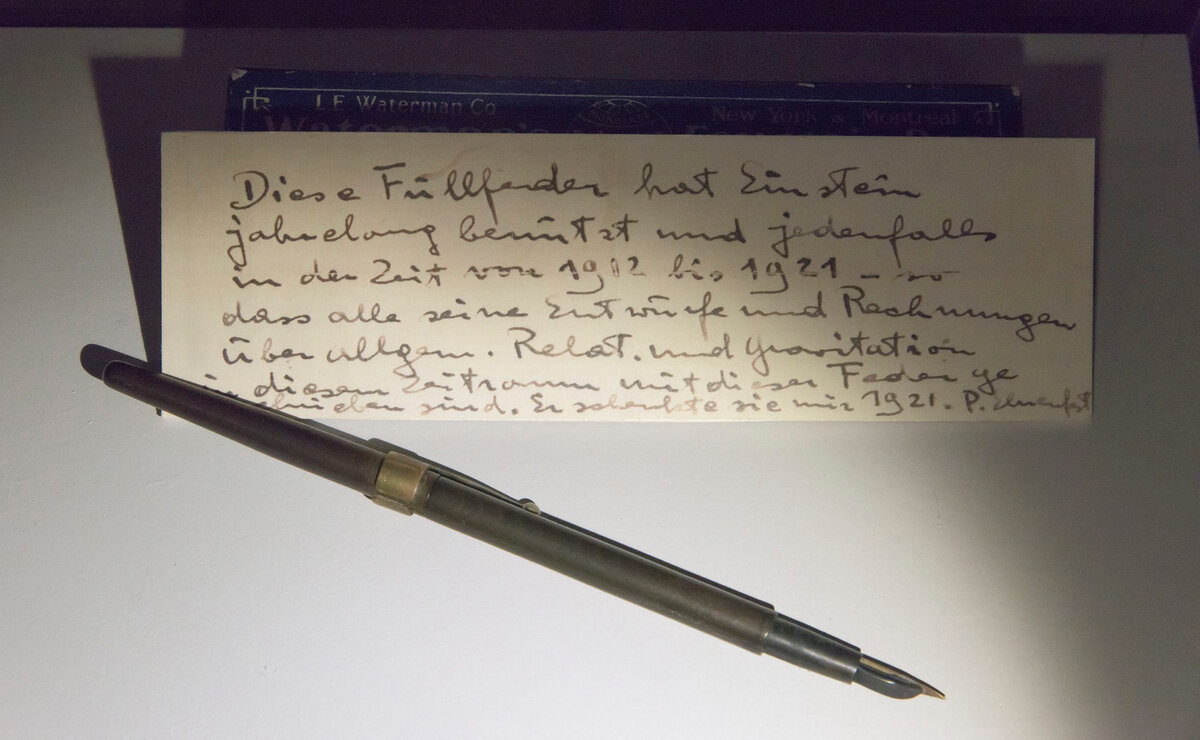 L.E. Waterman Co New York & Montreal
Waterman's
Diese Füllfeder hat Einstein
jahrelang benützt und jedenfalls
in der Zeit von 1912 bis 1921 – so
dass alle seine Entwürfe und Rechnungen
über allgem. Relat. und Gravitation
in diesem Zeitraum mit dieser Feder ge
schrieben sind. Er schenkte sie mir 1921. P. Ehrenfest